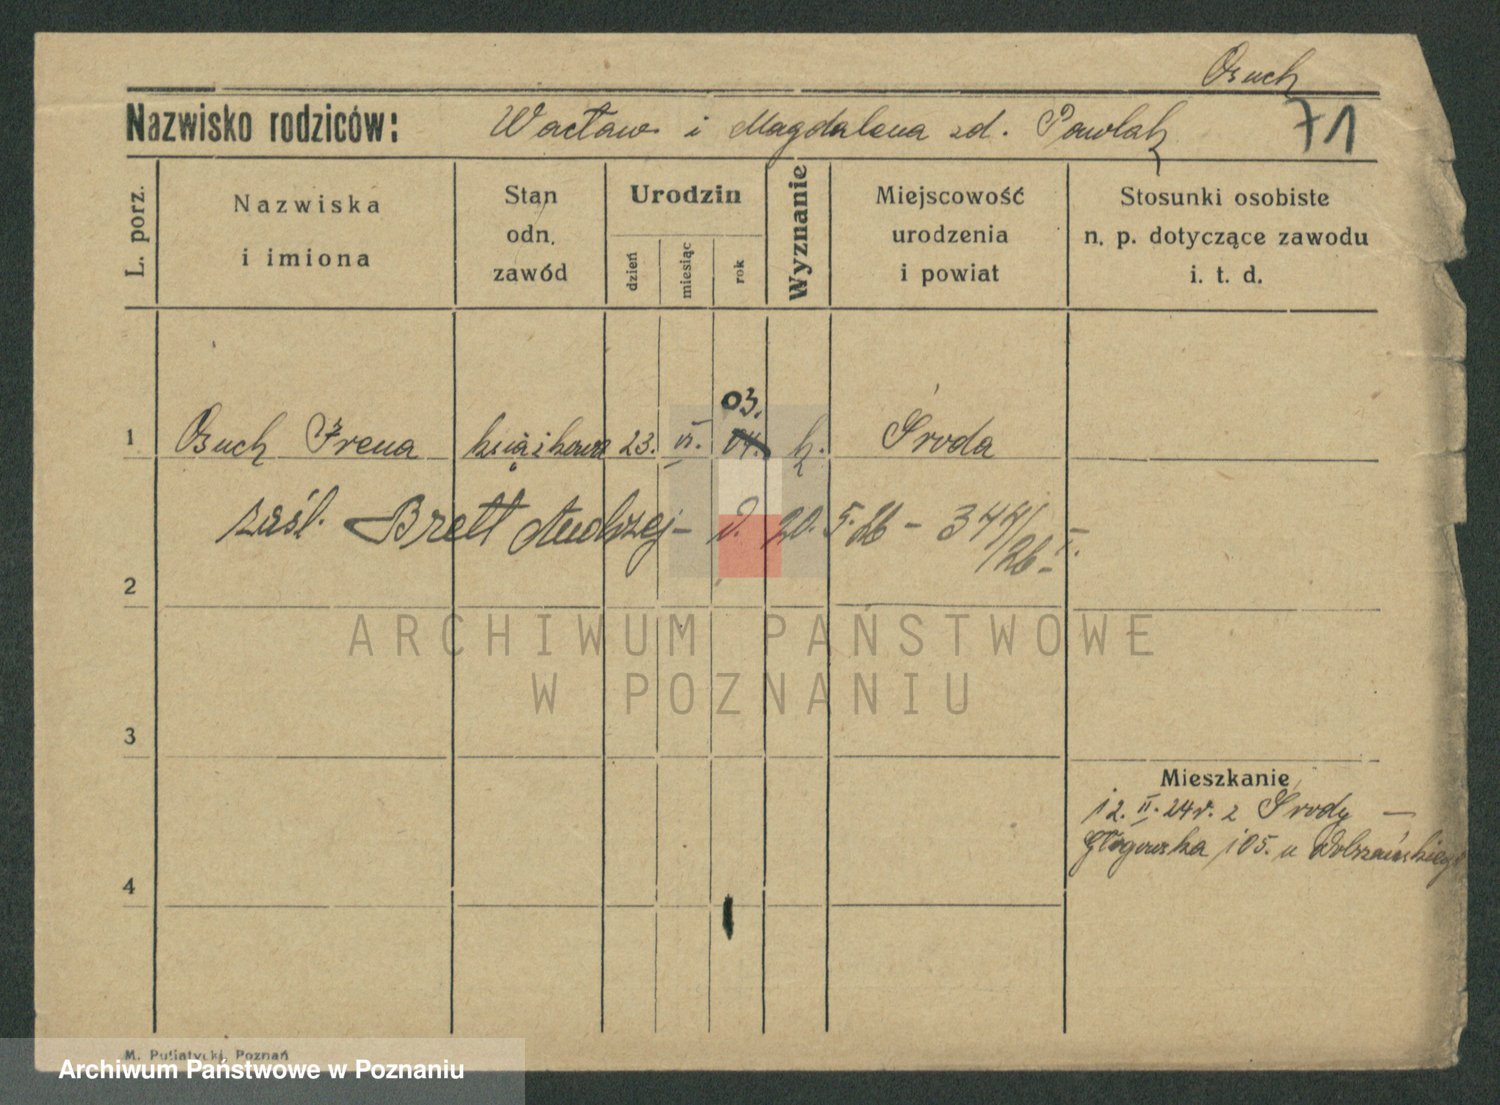 Osuch
Nazwisko rodziców: Wacław i Magdalena zd. Pawlak
71
L. porz.
Nazwiska
i imiona
Stan
odn.
zawód
Urodzin
dzień
miesiąc
rok
Wyznanie
Miejscowość
urodzenia
i powiat
Stosunki osobiste
n. p. dotyczące zawodu
i. t. d.
03.
1 Osuch Irena książkowa 23. VI. 04. k. Środa
zaśl. Brett Andrzej - d. 20. 5. 26 - 344/26 - I.
2
ARCHIWUM PAŃSTWOWE
W POZNANIU
3
Mieszkanie
12. II. 24 r. z Środy —
Głogowska 105. u
4
M. Putiatycki, Poznań
Archiwum Państwowe w Poznaniu